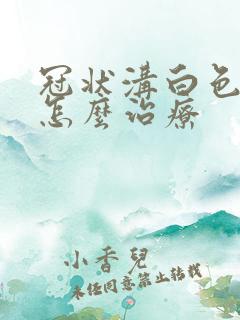 冠状溝白色
怎麼治療
小香兒
未经同意禁止转载